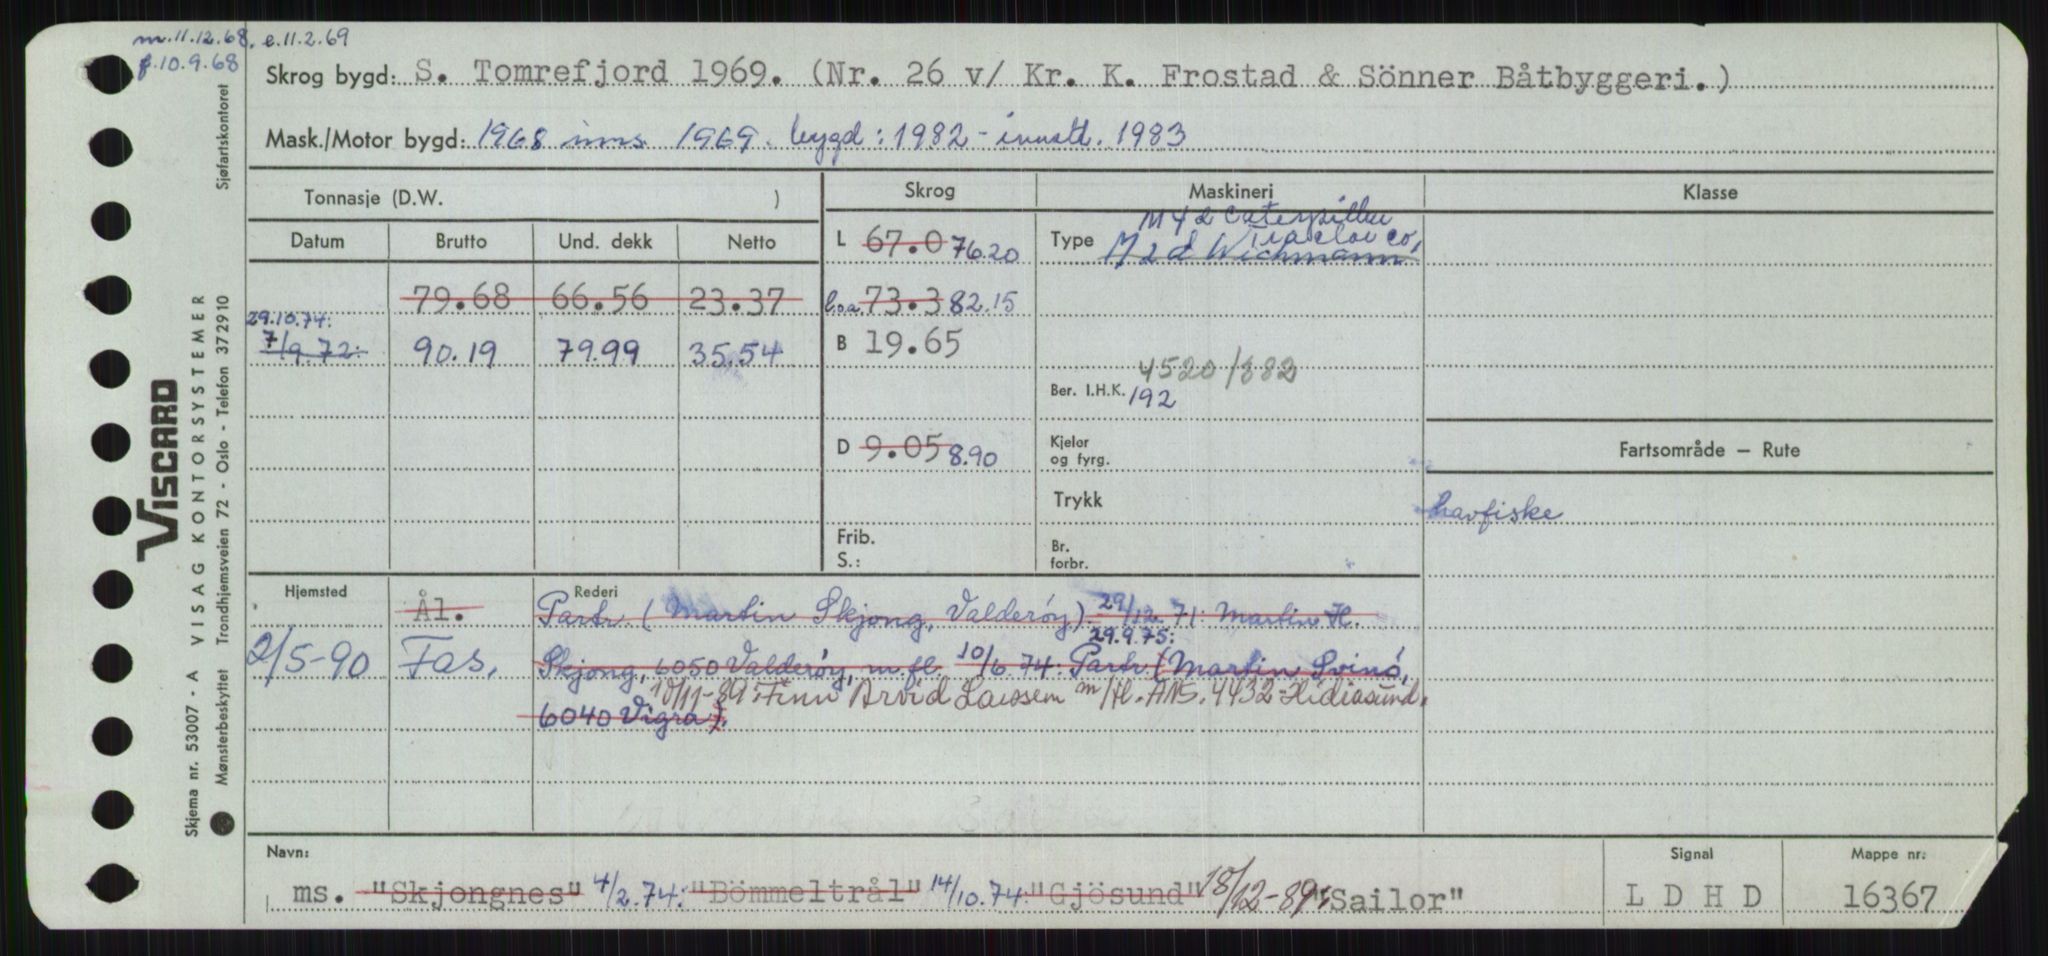 m. 11.12.68, e. 11.2.69
f. 10.9.68
Skrog bygd: S. Tomrefjord 1969. (Nr. 26 v/ Kr. K. Frostad & Sönner Båtbyggeri.)
Mask./Motor bygd: 1968 inns. 1969. bygd: 1982 - innstl. 1983
Tonnasje (D.W. )
Skrog
Maskineri
Klasse
Datum Brutto Und. dekk Netto
L 67.0 76.20
Type M 4 2 Caterpillar
Tractor Co.
M 2 d Wichmann
79.68 66.56 23.37
l.o.a 73.3 82.15
29.10.74:
7/9.72: 90.19 79.99 35.54
B 19.65
4520/882
Ber. I.H.K. 192
D 9.05 8.90
Kjeler
og fyrg.
Fartsområde – Rute
Trykk
havfiske
Frib.
S.:
Br.
forbr.
Hjemsted
Rederi
Ål. Partr. (Martin Skjong, Valderöy). 29/12.71: Martin H.
29.9.75:
2/5-90 Fas. Skjong, 6050 Valderöy, m.fl. 10/6.74: Partr. (Martin Svinö,
10/11-89: Finn Arvid Larssen m/fl. ANS. 4432 Hidrasund.
6040 Vigra).
Navn:
Signal
Mappe nr:
ms. "Skjongnes" 4/2.74: "Bömmeltrål" 14/10.74: "Gjösund" 18/12-89: "Sailor"
L D H D
16367
VISCARD
VISAG KONTORSYSTEMER
Sjøfartskontoret
Skjema nr. 53007 - A
Mønsterbeskyttet Trondhjemsveien 72 - Oslo - Telefon 372910